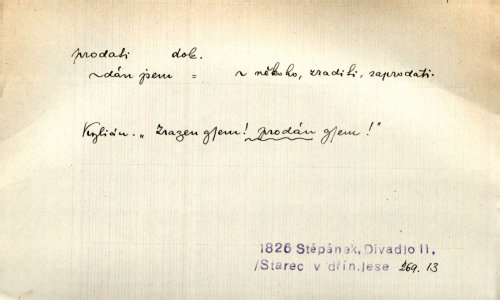 prodati dok.
~dán jsem = ~ někoho, zraditi, zaprodati.
Kylián. „Zrazen gsem! prodán gsem!"
1826 Štěpánek, Divadlo II,
/Starec v dřín.lese 269.13